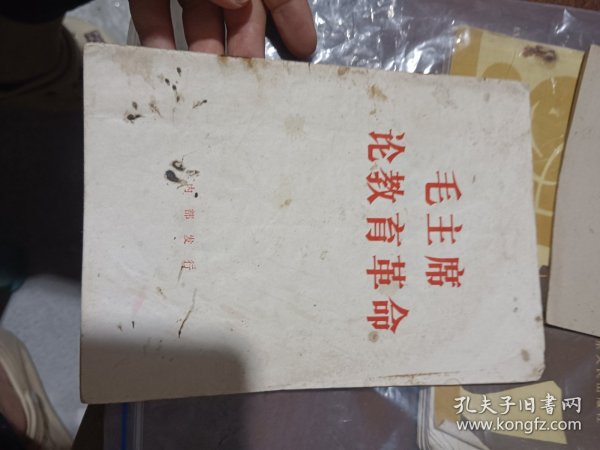 毛主席
论教育革命
内部发行
孔夫子旧书网
www.kongfz.com